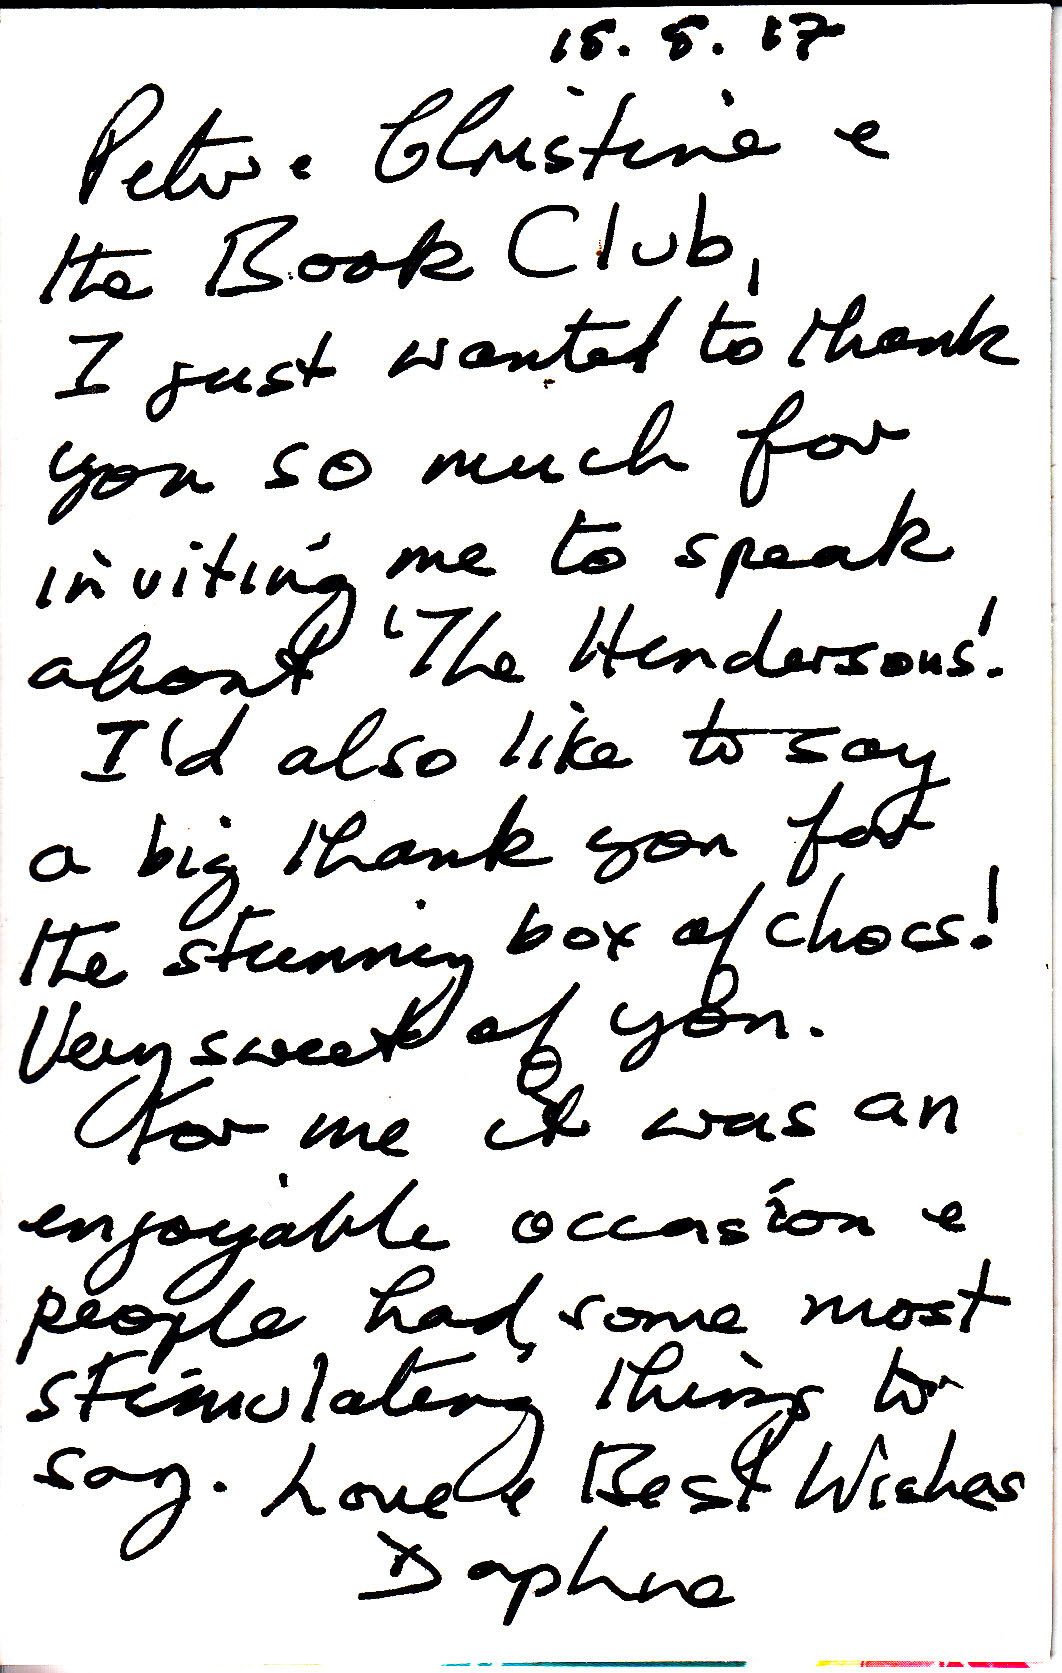 15. 5. 17
Peter & Christine &
the Book Club,
I just wanted to thank
you so much for
inviting me to speak
about 'The Hendersons'.
I'd also like to say
a big thank you for
the stunning box of chocs!
Very sweet of you.
For me it was an
enjoyable occasion &
people had some most
stimulating things to
say. Love & Best Wishes
Daphne